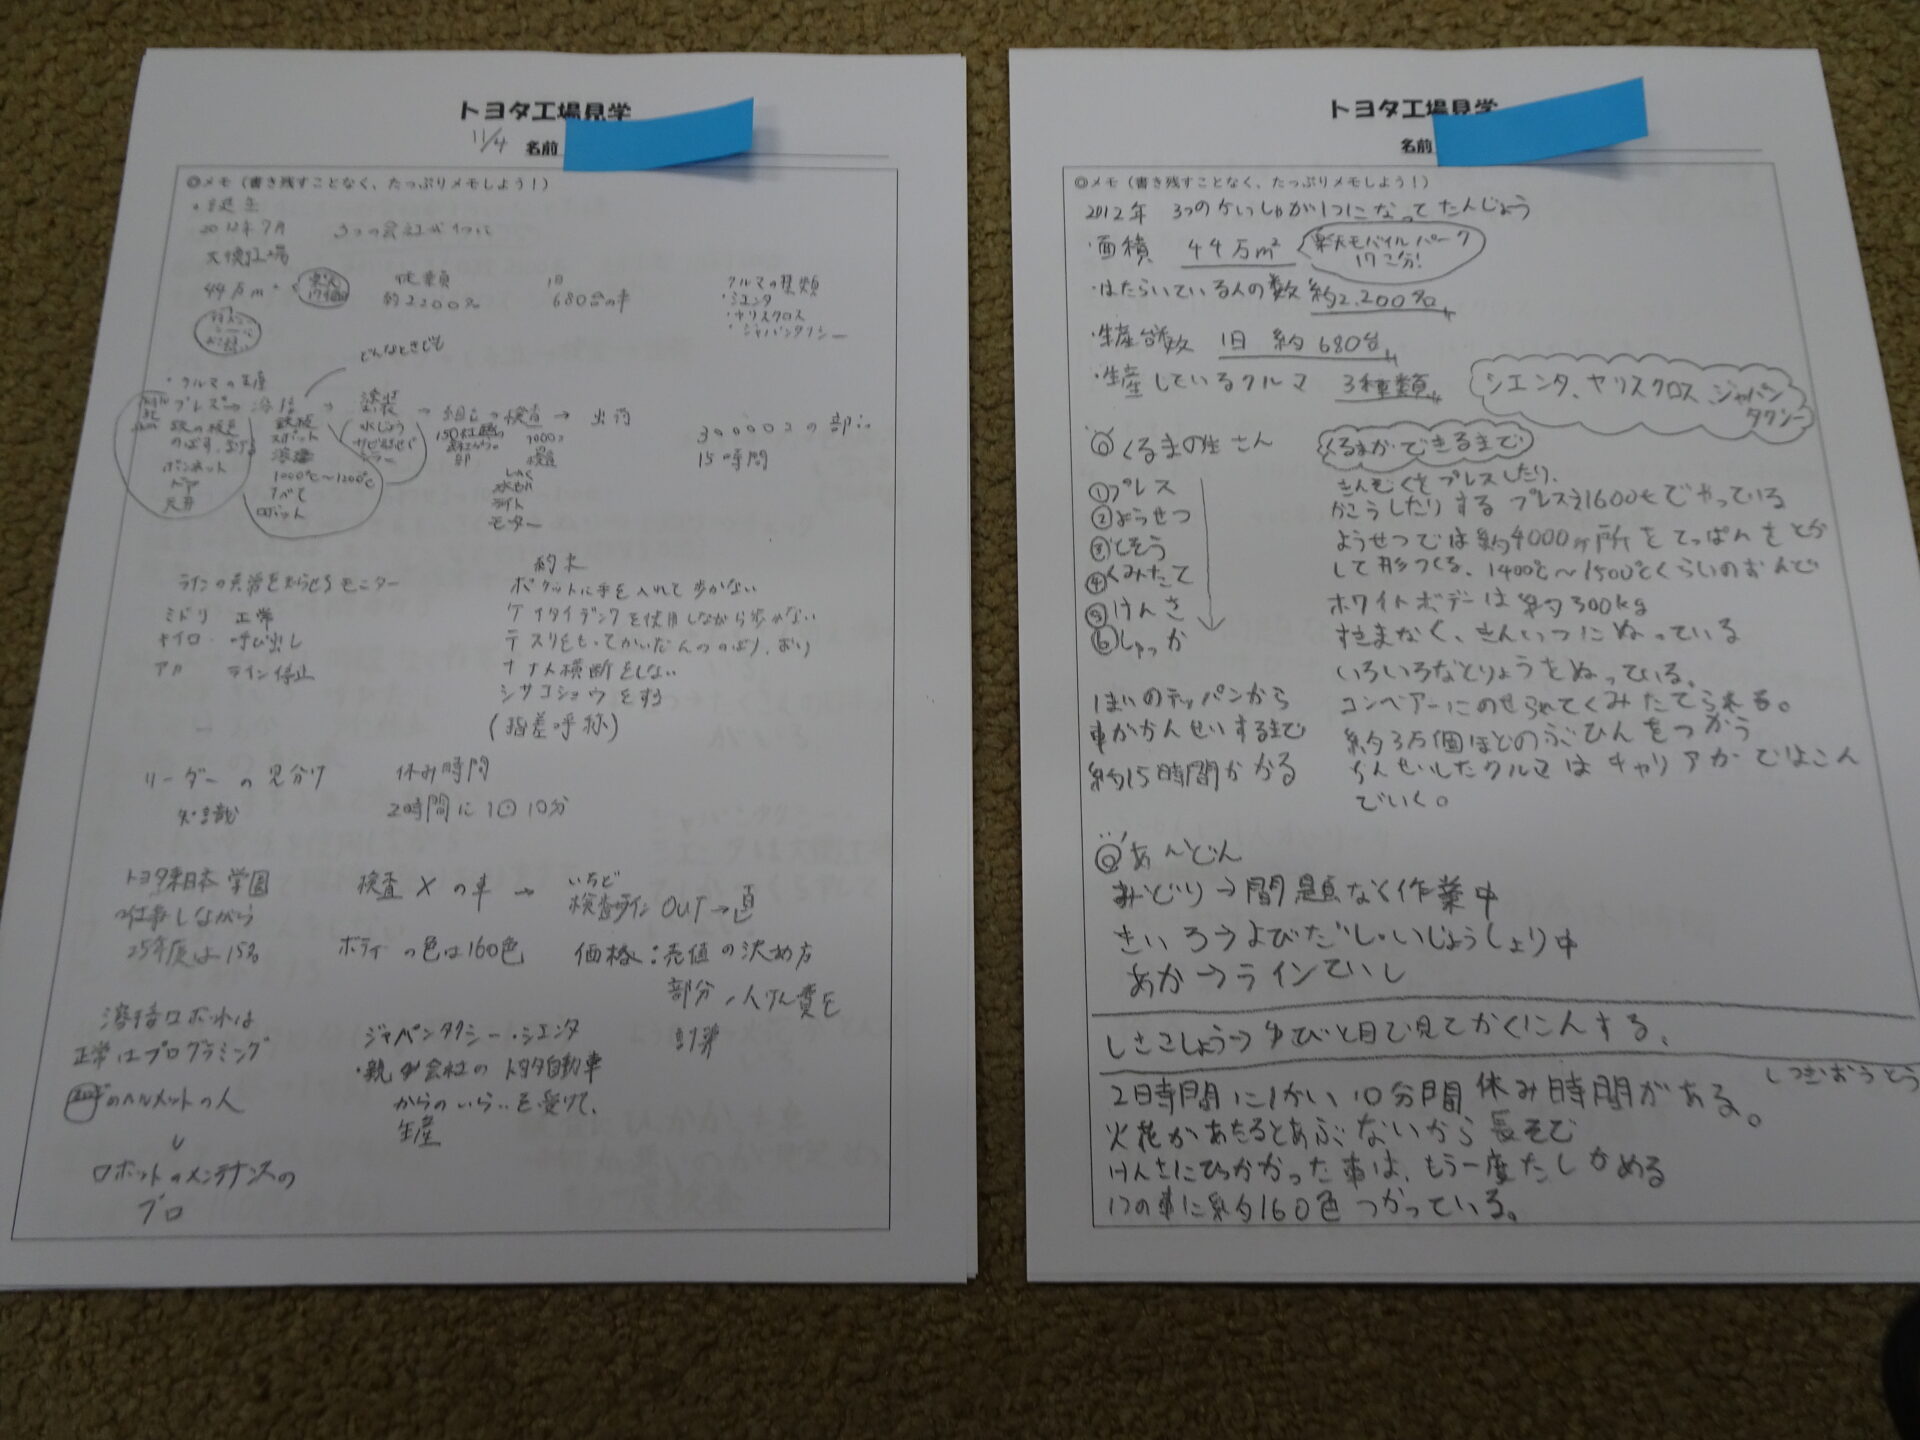 トヨタ工場見学
11/4 名前
◎メモ(書き残すことなく、たっぷりメモしよう!)
・誕生
2012年7月 3つの会社が1つに
大衡工場
44万m²
楽天
17個
従業員
約2200名
1日
680台の車
クルマの種類
・シエンタ
・ヤリスクロス
・ジャパンタクシー
どんなときでも
・クルマの生産
プレス→溶接
塗装
→組立→検査→出荷
のばす、まげる
ボンネット
ドア
天井
鉄板
スポット
溶接
1000℃~1200℃
すべて
ロボット
水じょう
検査
ライト
モーター
30000コの部品
15時間
ラインの異常を知らせるモニター
ミドリ 正常
キイロ 呼び出し
アカ ライン停止
約束
ポケットに手を入れて歩かない
ケイタイデンワを使用しながら歩かない
テスリをもってかいだんののぼり、おり
ナナメ横断をしない
シサコショウをする
(指差呼称)
リーダーの見分け
知識
休み時間
2時間に1回10分
トヨタ東日本学園
仕事しながら
25年度は15名
検査Xの車→
いちど
検査ライン OUT→直
ボディの色は160色
価格:売値の決め方
部分、人けん費を
計算
溶接ロボットは
正常はプログラミング
のヘルメットの人
ロボットのメンテナンスの
プロ
ジャパンタクシー・シエンタ
・親会社のトヨタ自動車
からのいらいを受けて、
生産
トヨタ工場見学
名前
◎メモ(書き残すことなく、たっぷりメモしよう!)
2012年 3つのかいしゃが1つになってたんじょう
・面積 44万m²
楽天モバイルパーク
17こ分!
・はたらいている人の数 約2,200名
・生産台数 1日 約680台
・生産しているクルマ 3種類
シエンタ、ヤリスクロス、ジャパン
タクシー
◎くるまの生さん
くるまができるまで
①プレス
②ようせつ
③とそう
④くみたて
⑤けんさ
⑥しゅっか
きんぞくをプレスしたり、
かこうしたりする プレスは1600tでやっている
ようせつでは約4000ヶ所をてっぱんをとか
して形つくる、1400℃~1500℃くらいのおんど
ホワイトボデーは約300kg
すきまなく、きんいつにぬっている
いろいろなとりょうをぬっている。
コンベアーにのせられてくみたてられる。
約3万個ほどのぶひんをつかう
かんせいしたクルマはキャリアカーではこん
でいく。
1まいのテッパンから
車がかんせいするまで
約15時間かかる
◎あんどん
みどり→問題なく作業中
きいろ→よびだし・いじょうしょり中
あか→ラインていし
しさこしょう→ゆびと目で見てかくにんする、
2時間に1かい10分間休み時間がある。
火花があたるとあぶないから長そで
けんさにひっかかった車は、もう一度たしかめる
1つの車に約160色つかっている。